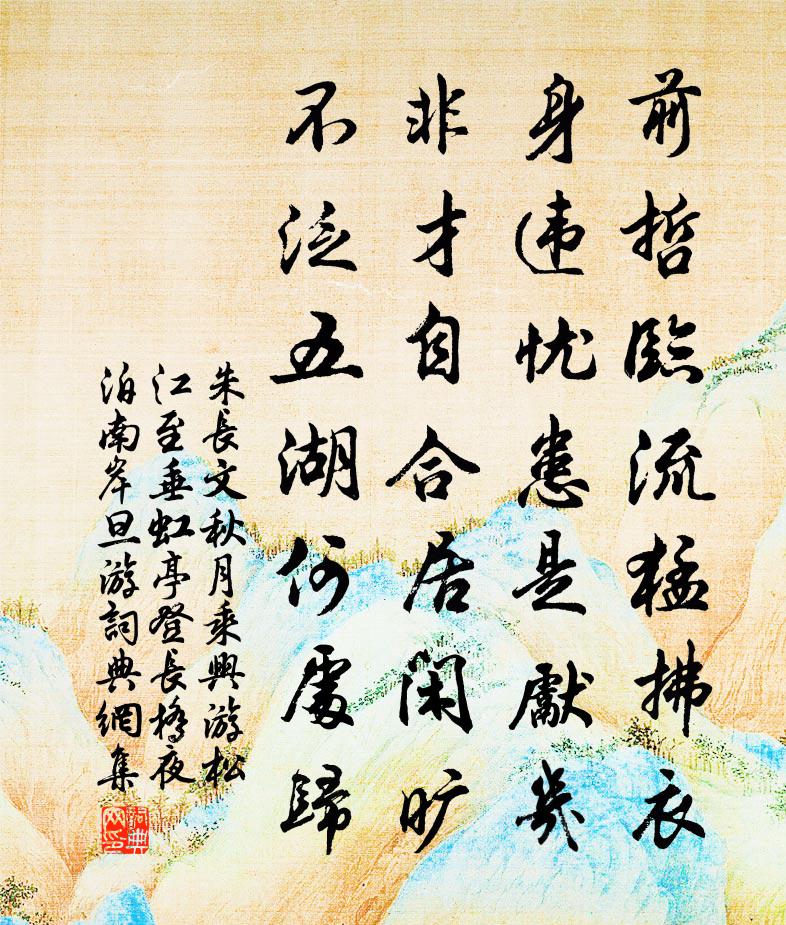 前哲臨流猛拂衣
身违忧患是獻幾
非才自合居闲旷
不泛五湖何處歸
朱長文秋月乘興游松
江至垂虹亭登長橋夜
泊南岸旦游詞典網集
詞典
网印